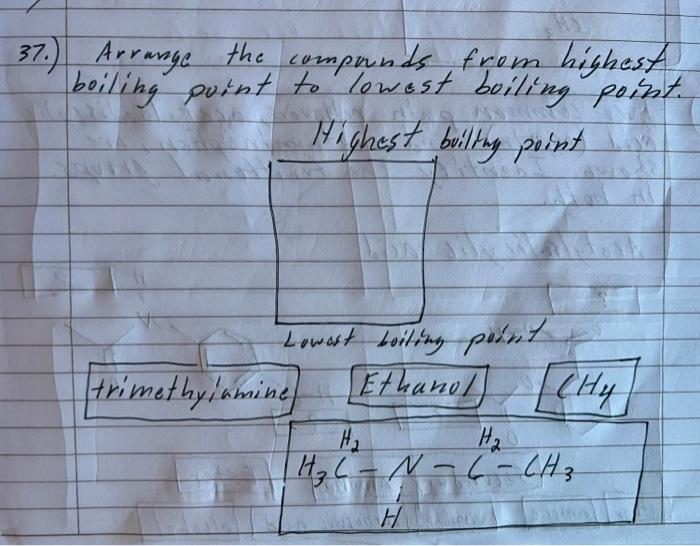 37.) Arrange the compounds from highest
boiling point to lowest boiling point.
Highest boiling point
Lowest boiling point
trimethylamine Ethanol CH4
H2 H2
H3C-N-C-CH3
H